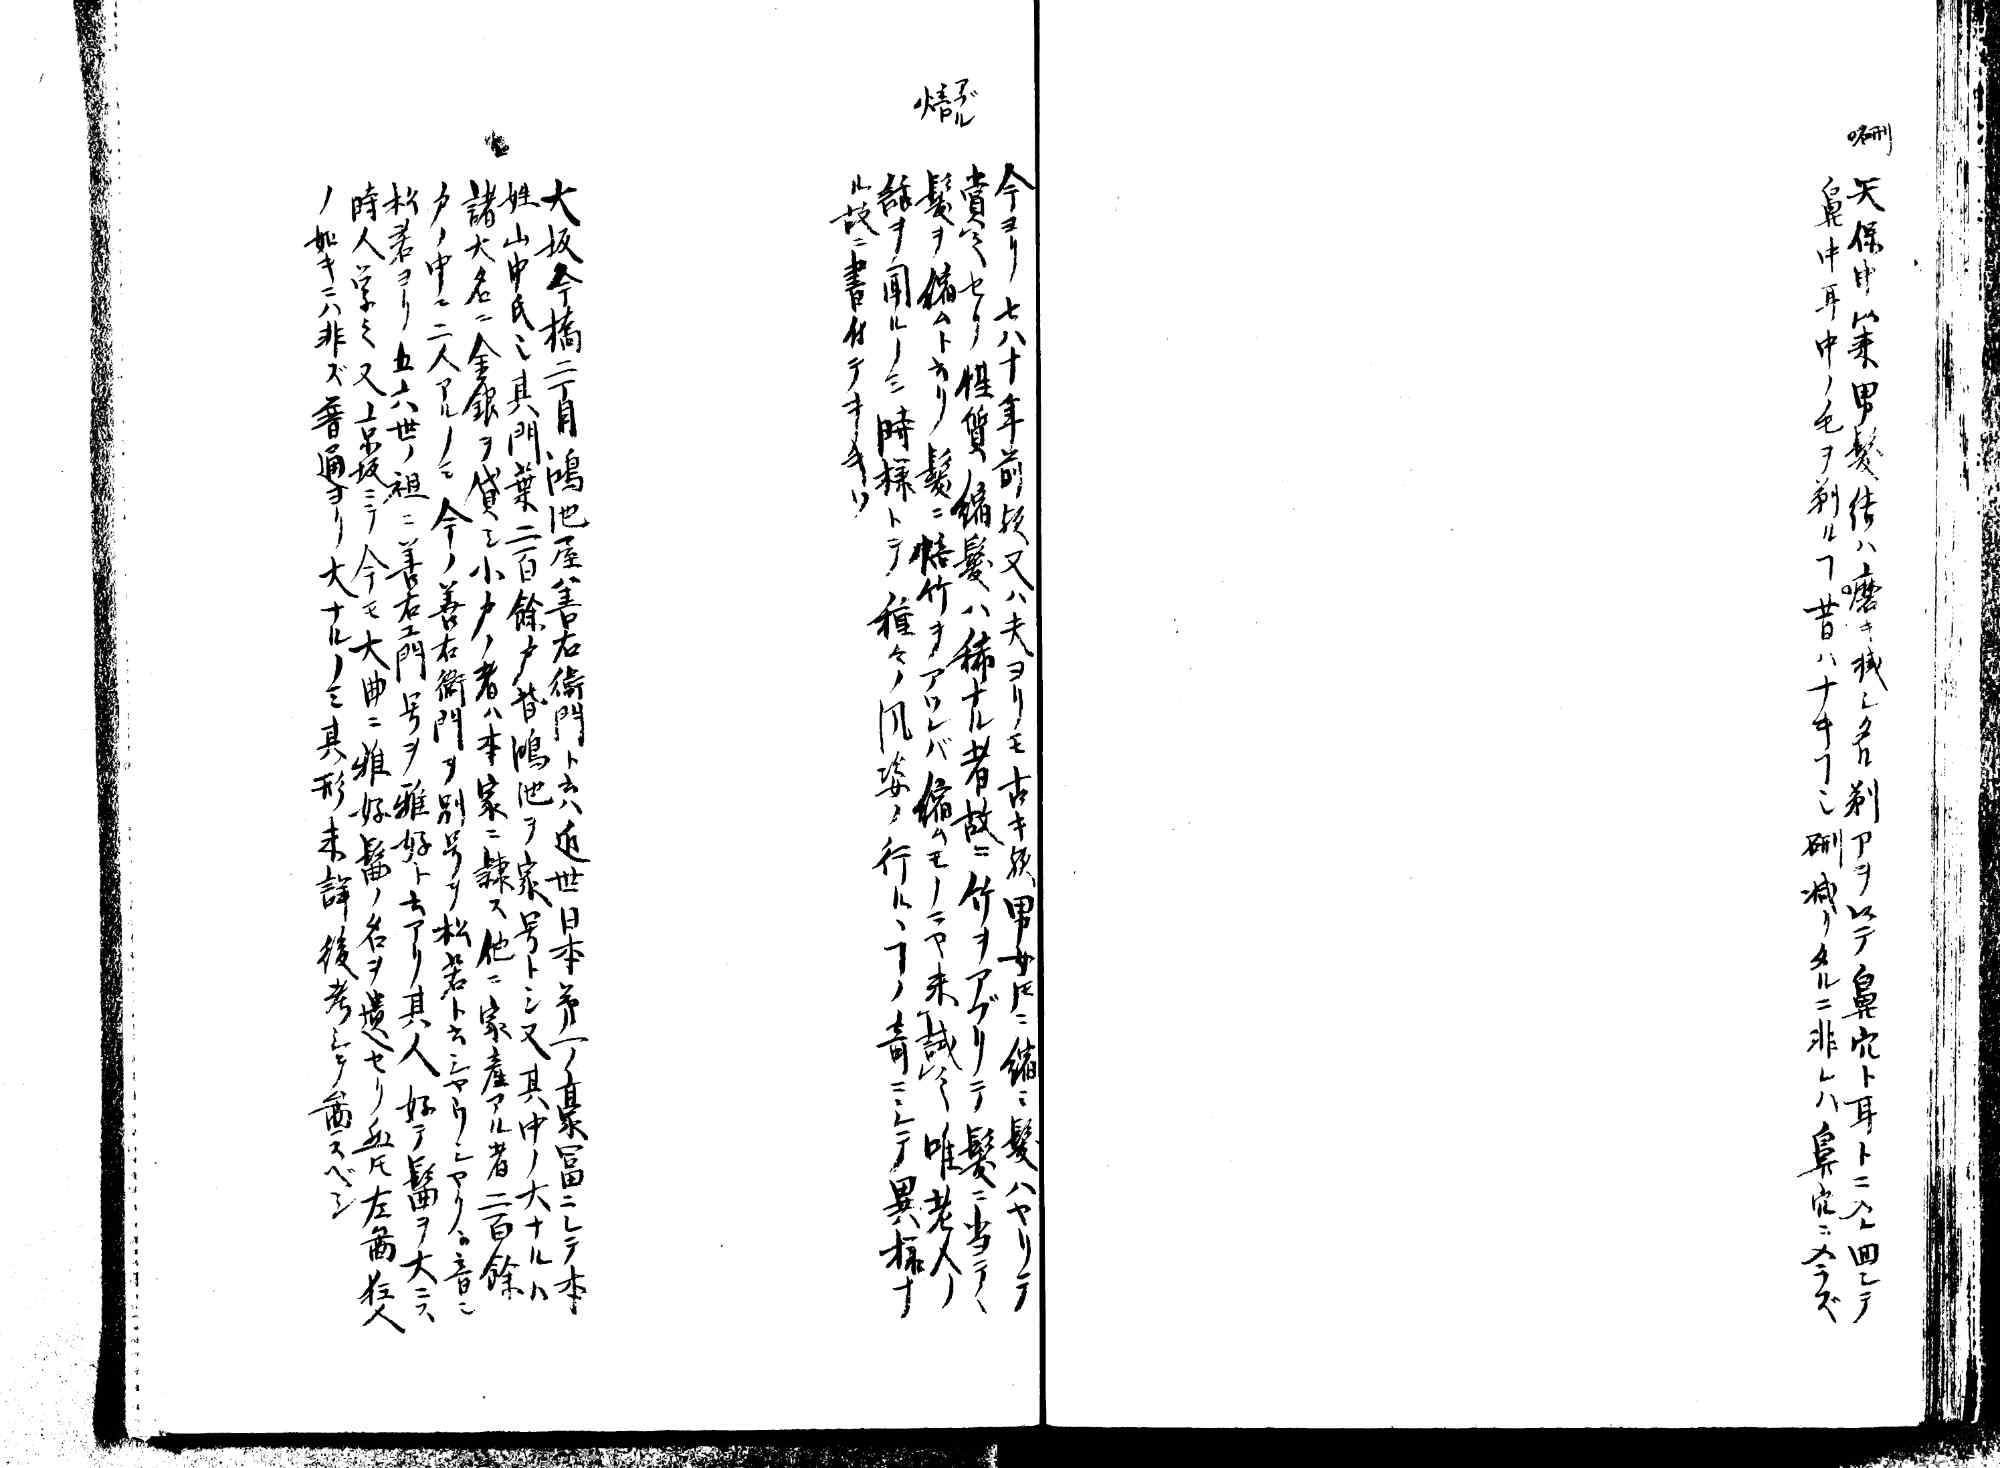 天保中以来男髪結ハ磨キ減シタル剃刀ヲ以テ鼻穴ト耳トニ入レ回シテ
鼻中耳中ノ毛ヲ剃ルヿ昔ハナキヿ也
減リタルニ非レハ鼻穴ニ入ラズ
アブル
焙
今ヨリ七八十年前頃又ハ夫ヨリモ古キ頃男女トモニ縮ミ髪ハヤリテ
賞之セリ性質ノ縮髪ハ稀ナル者故ニ竹ヲアブリテ髪ニ当テ
髪ヲ縮ムト云リ髪ニ焙竹ヲアツレバ縮ムモノニヤ未試之唯老人ノ
話ヲ聞ルノミ時様トテ種々ノ風姿ノ行ルヽヿノ奇ニシテ異様ナ
ル故ニ書付テオキヌ
大坂今橋二丁目鴻池屋善右衛門ト云ハ近世日本第一ノ豪冨ニシテ本
姓山中氏也其門葉二百餘戸皆鴻池ヲ家号トシ又其中ノ大ナルハ
諸大名ニ金銀ヲ貸シ小戸ノ者ハ本家ニ隷ス他ニ家産アル者二百餘
戸ノ中ニ二人アルノミ今ノ善右衛門ヲ別号ヲ松
ヨリ五六世ノ祖ニ善右エ門号ヲ雅好ト云アリ其人好テ髷ヲ大ニス
時人学之又京坂ニテ今モ大曲ニ雅好髷ノ名ヲ遺セリ然トモ左
ノ如キニハ非ズ普通ヨリ大ナルノミ其形未詳後考シテ画スベシ